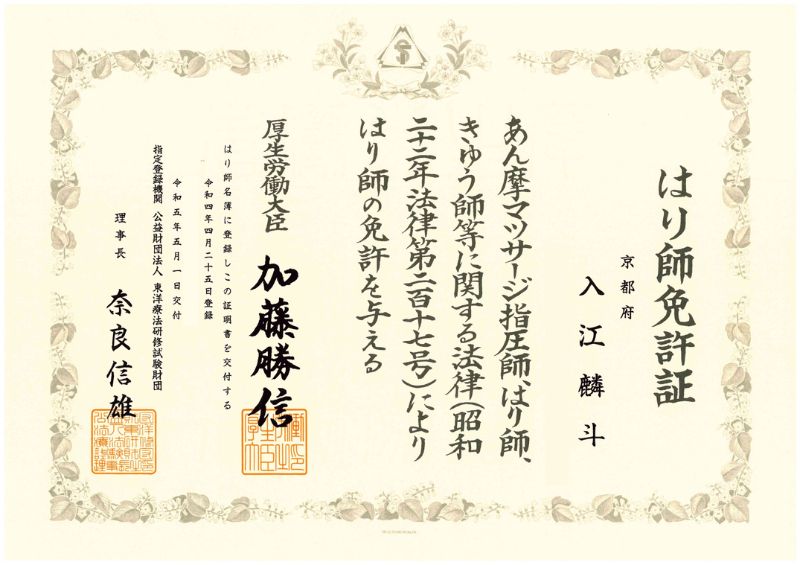 はり師免許証
京都府
入江麟斗
あん摩マツサージ指圧師、はり師、
きゆう師等に関する法律(昭和
二十二年法律第二百十七号)により
はり師の免許を与える
厚生労働大臣 加藤勝信
はり師名簿に登録しこの証明書を交付する
令和四年四月二十五日登録
令和五年五月一日交付
指定登録機関 公益財団法人 東洋療法研修試験財団
理事長 奈良信雄